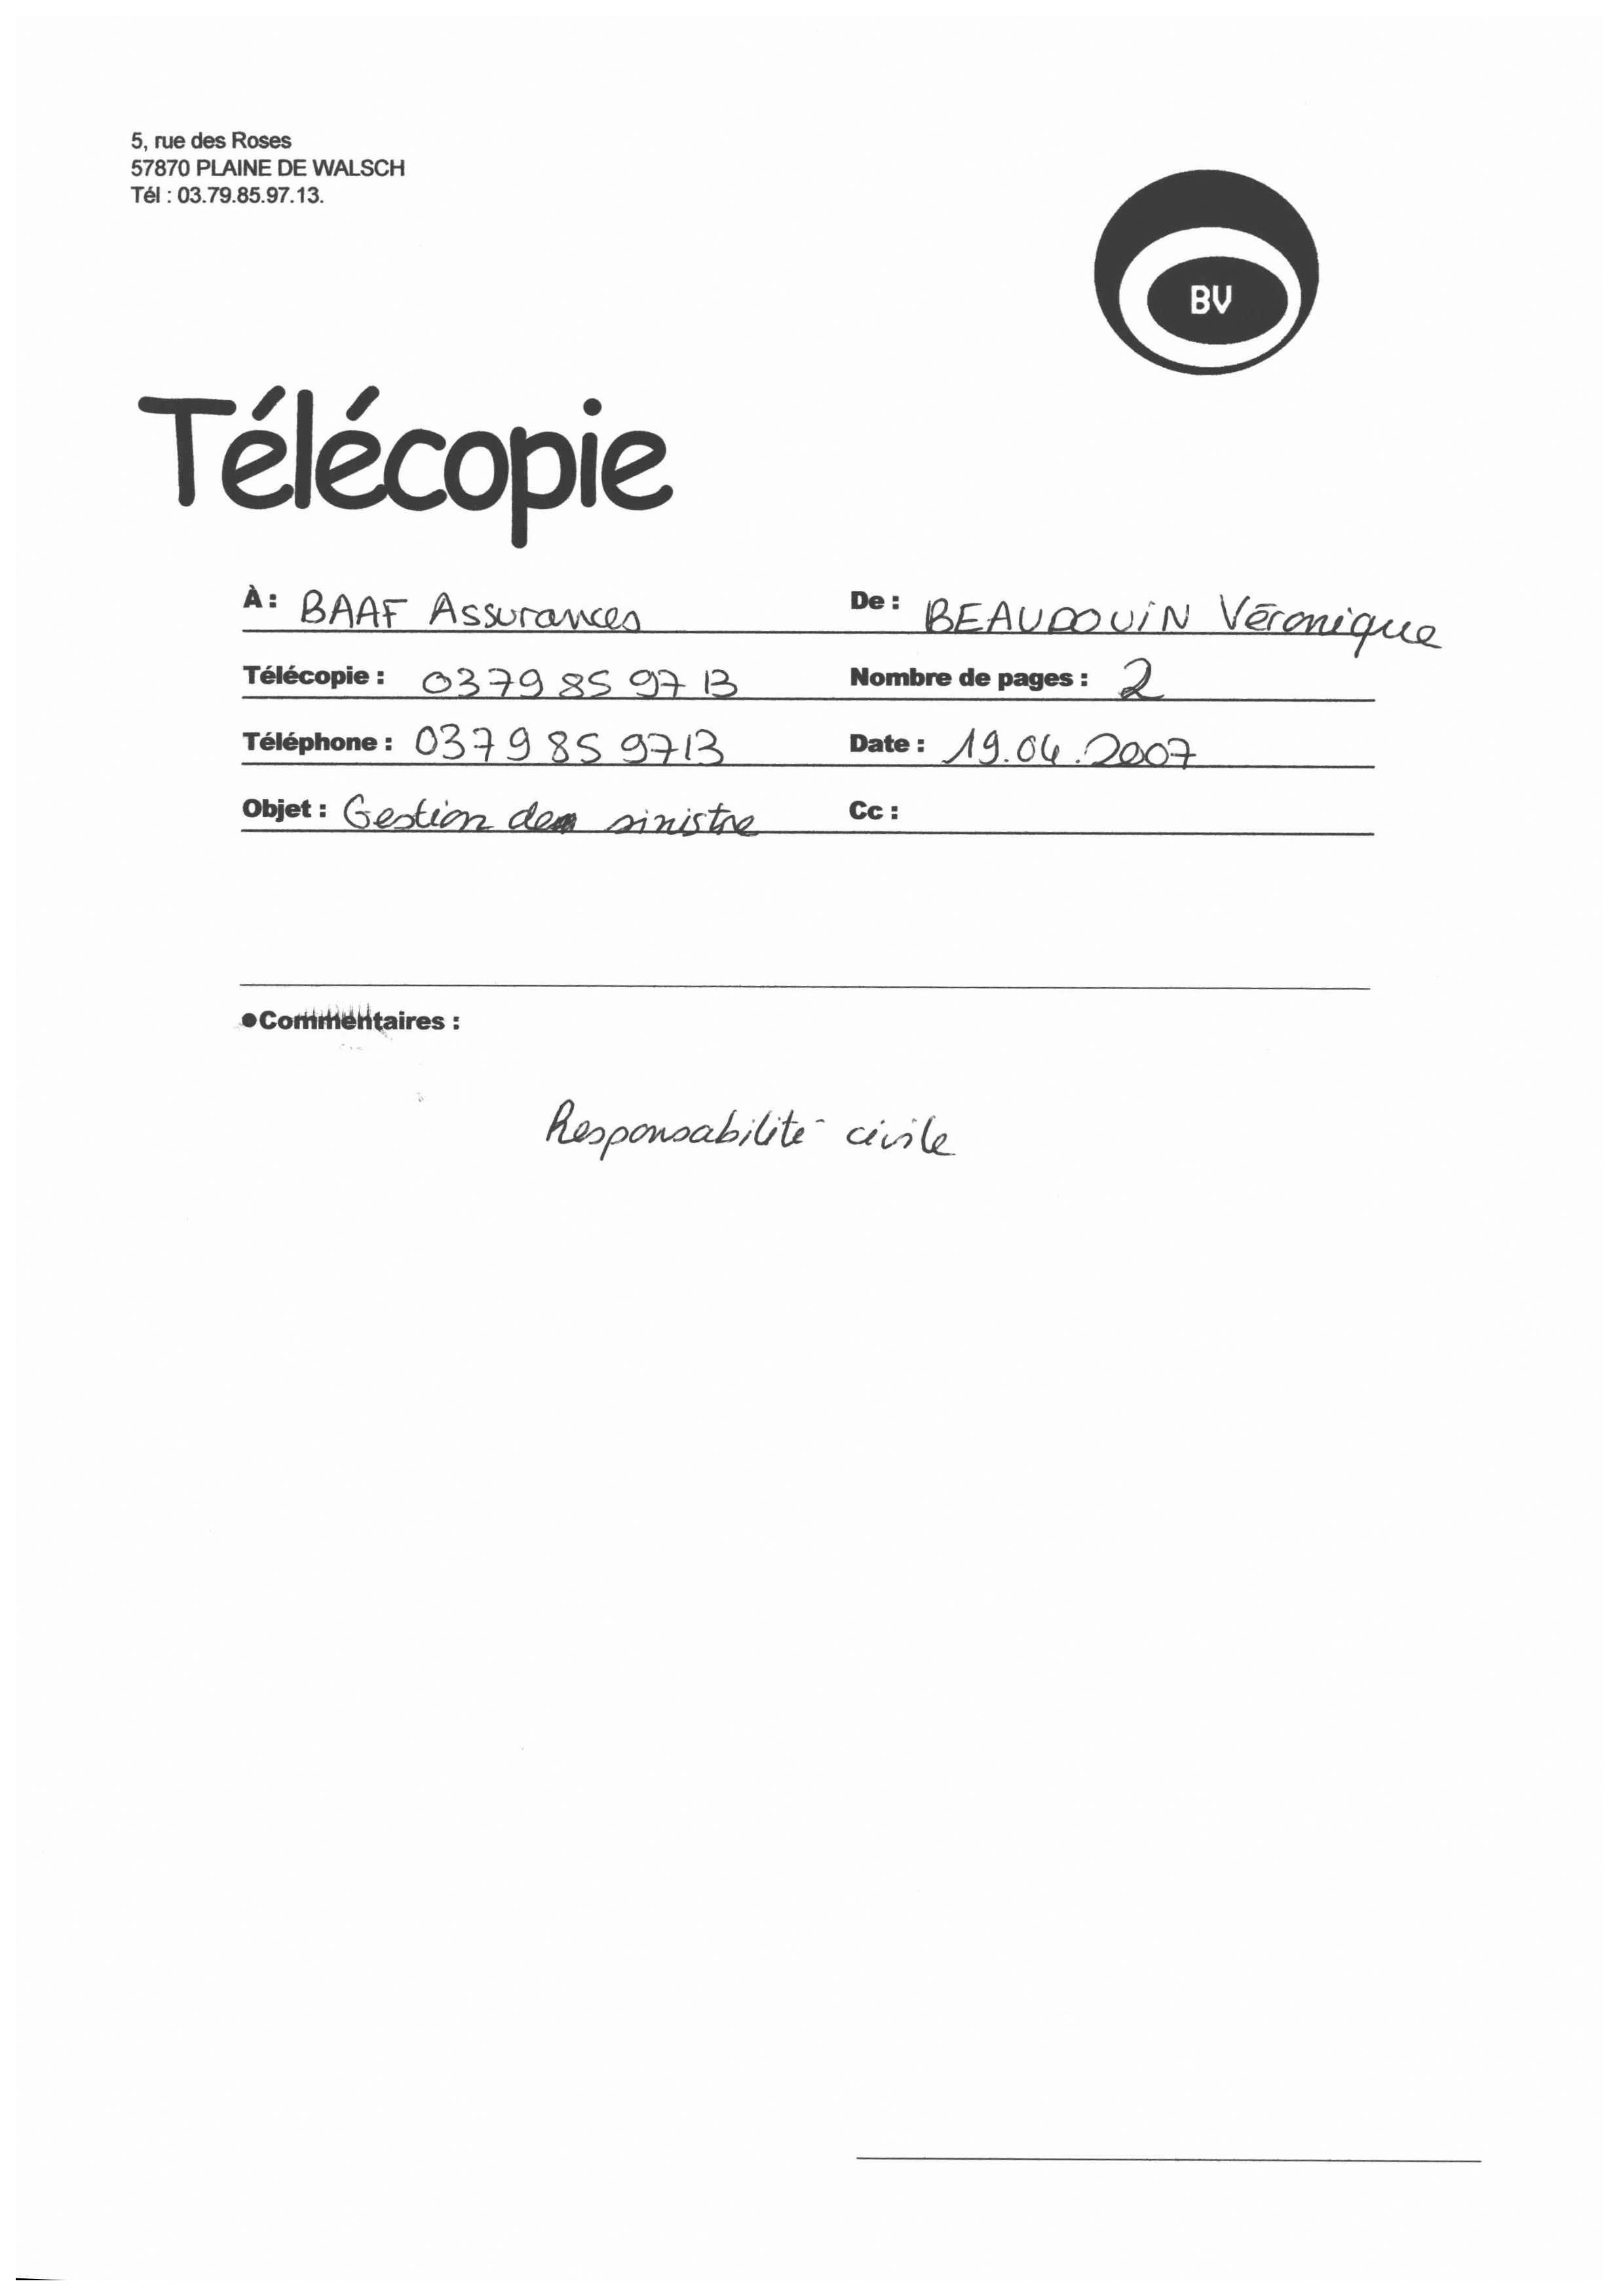 5, rue des Roses
57870 PLAINE DE WALSCH
Tél : 03.79.85.97.13.
BV
Télécopie
À : BAAF Assurances De : BEAUDOUIN Véronique
Télécopie : 03 79 85 97 13 Nombre de pages : 2
Téléphone : 03 79 85 97 13 Date : 19.04.2007
Objet : Gestion de sinistre Cc :
●Commentaires :
Responsabilité civile